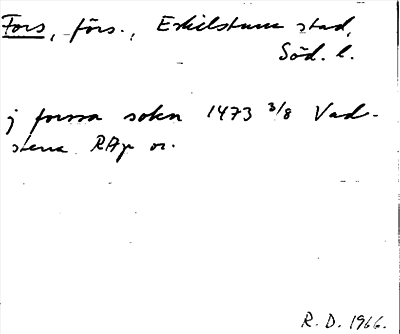 Fors, förs., Eskilstuna stad,
Söd. l.
j forssa soken 1473 3/8 Vad-
stena RAp or.
R. D. 1966.